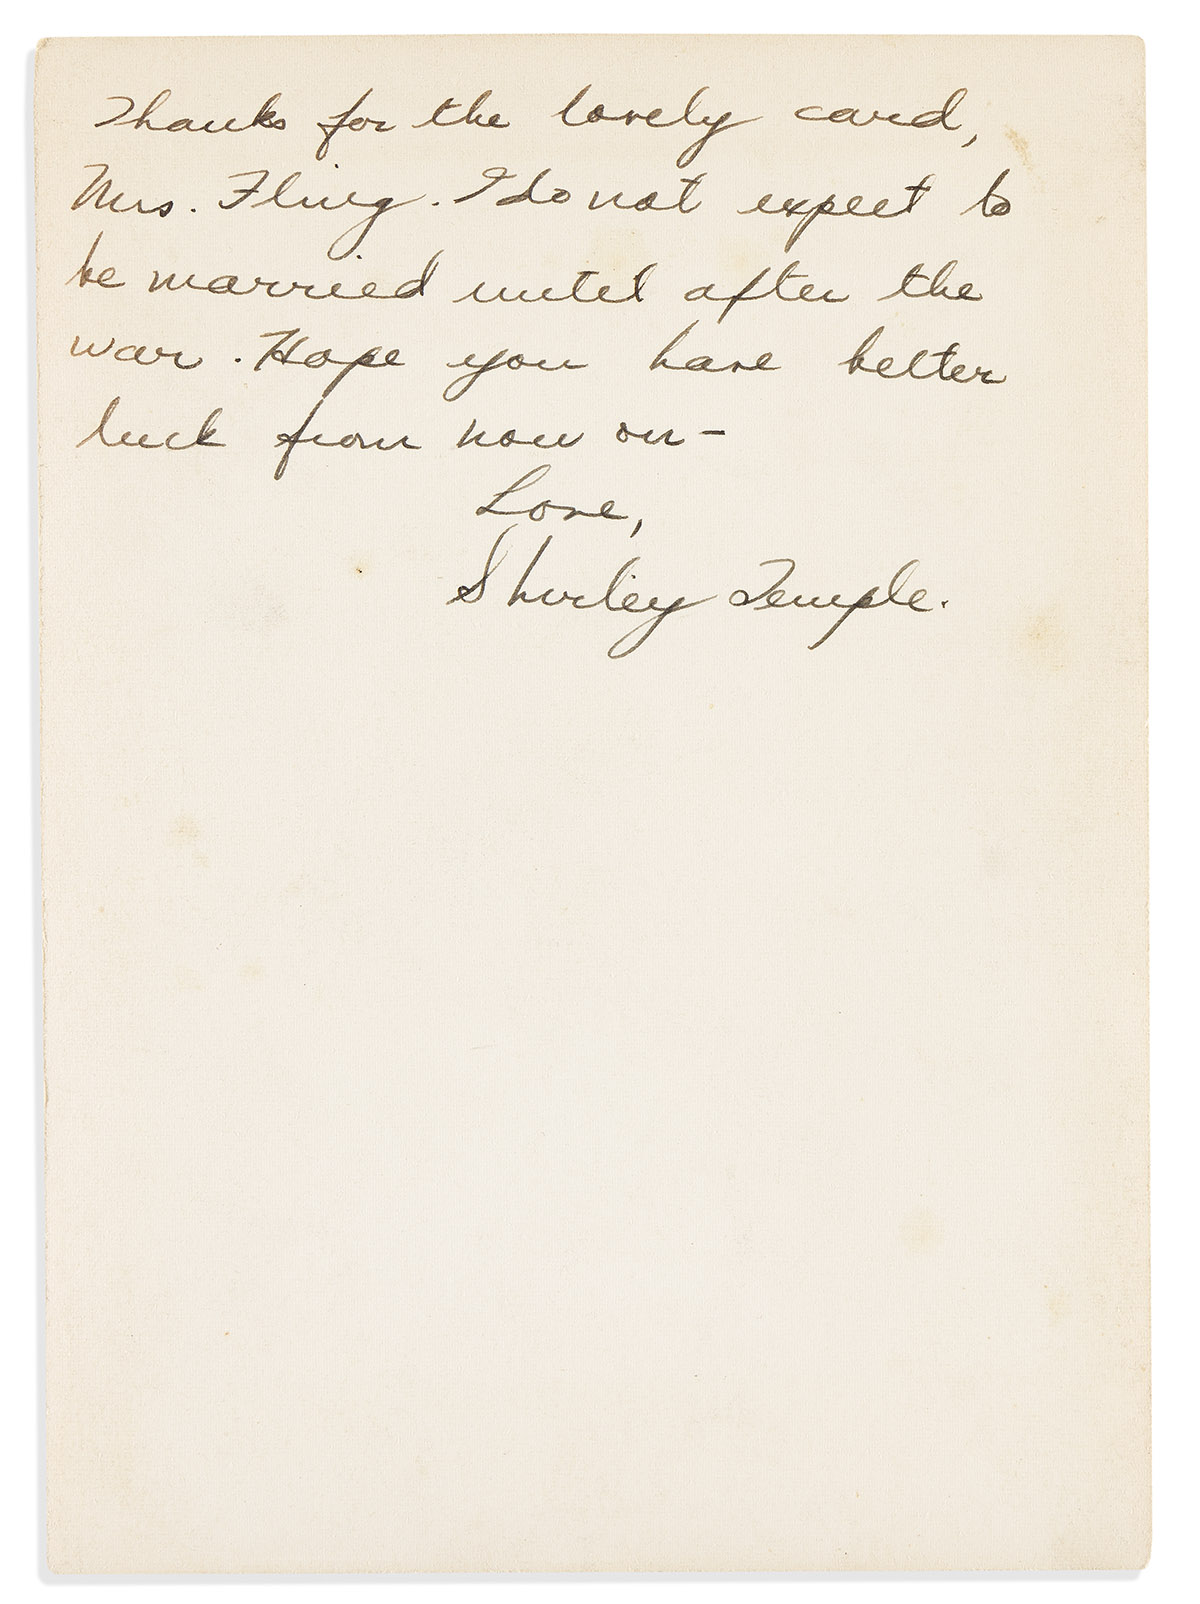 Thanks for the lovely card,
Mrs. Fling. I do not expect to
be married until after the
war. Hope you have better
luck from now on-
Love,
Shirley Temple.